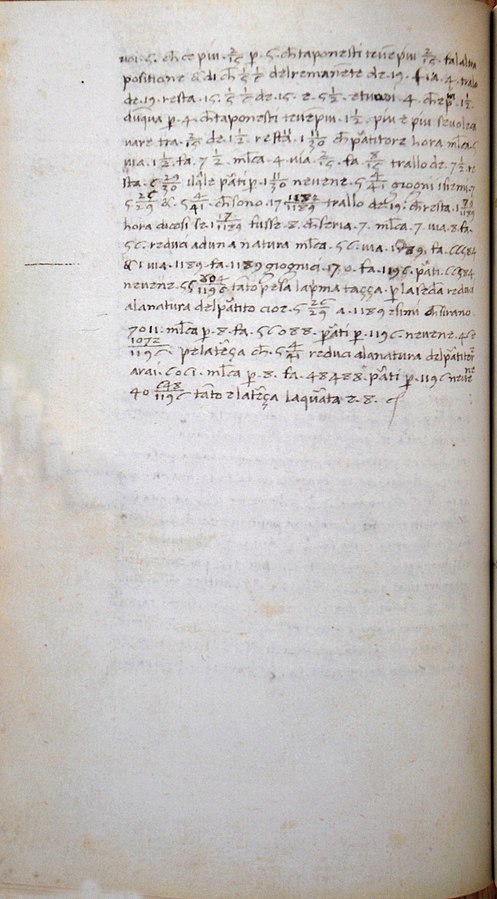 voi .5. ch̄ ce piu . 2/15 p̄ .5. ch̄ taponesti tevē piu 2/15. fa laltra
positione & di ch̄ 1/5 1/5 del remanēte de .19. sia .4. trallo
de .19. resta .15. 1/5 1/5 de .15. e .5 1/2. et voi .4. ch̄ e piu .1 1/2.
dūqua p̄ .4. ch̄ taponesti tevē piu . 1 1/2. piu e piu se vole ca
vare tra . 2/15 de . 1 1/2. resta . 1 11/30 ch̄ p̄titore hora m̄lca .5
via . 1 1/2. fa . 7 1/2. m̄lca .4. via . 2/15. fa . 8/15 trallo de . 7 1/2. re
sta . 6 29/30 p̄ti p̄ . 1 11/30 nevene .5 4/41 giogni .7.
5 26/29 &. 5 4/41 ch̄ sono . 17 1182/1189 trallo de .19. ch̄ resta .1 7/1189
hora di cosi se .1 7/1189 fusse .8. ch̄ seria .7. m̄lca .7. via .8. fa.
56. reduci ad una natura m̄lca .56. via . 1189. fa . 66584
& 1 via . 1189. fa . 1189 giognici . 7. fa . 1196. p̄ti . 66584
nevene . 55 804/1196 tāto pesa la p̄ma taçça . p̄ la secōda reduci
ala natura del p̄tito cioe .5 26/29 a . 1189 esimi ch̄ sirano
7011. m̄lca p̄ .8. fa . 56088. p̄ti p̄ . 1196. nevene . 46
1072/1196 pe la terça ch̄ . 5 4/41 reduci ala natura del p̄titore
arai . 6061. m̄lca p̄ .8. fa . 48488. p̄ti p̄ . 1196 nevene
40 648/1196 tāto e la terça la quarta e .8.